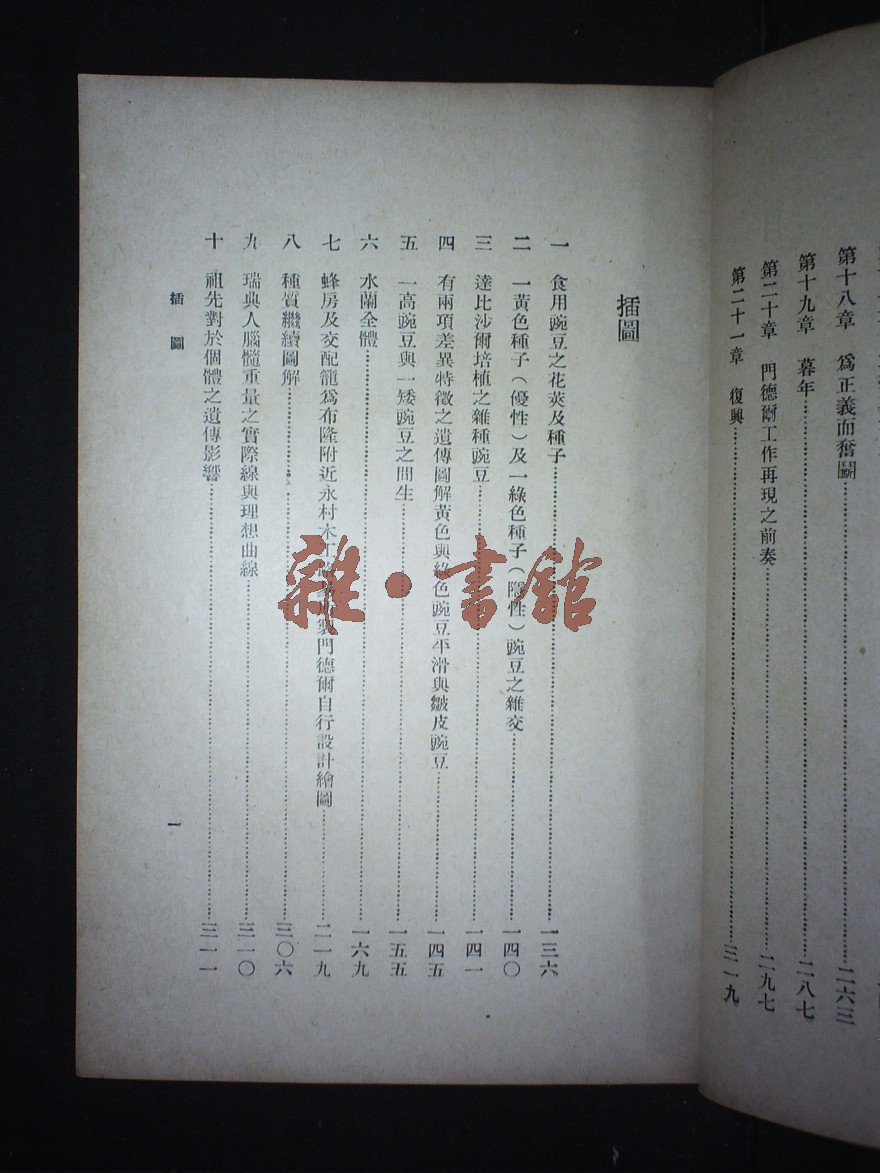 第十八章　為正義而奮鬭……二六三
第十九章　暮年……二八七
第二十章　門德爾工作再現之前奏……二九七
第二十一章　復興……三一九
插圖
一　食用豌豆之花莢及種子……一三六
二　一黃色種子（優性）及一綠色種子（隱性）豌豆之雜交……一四〇
三　達比沙爾培植之雜種豌豆……一四一
四　有兩項差異特徵之遺傳圖解黃色與綠色豌豆平滑與皺皮豌豆……一四五
五　一高豌豆與一矮豌豆之間生……一五五
六　水蘭全體……一六九
七　蜂房及交配籠為布隆附近永村木工製門德爾自行設計繪圖……二一九
八　種質繼續圖解……三〇六
九　瑞典人腦髓重量之實際線與理想曲線……三一〇
十　祖先對於個體之遺傳影響……三一一
插圖
一
雜·書館